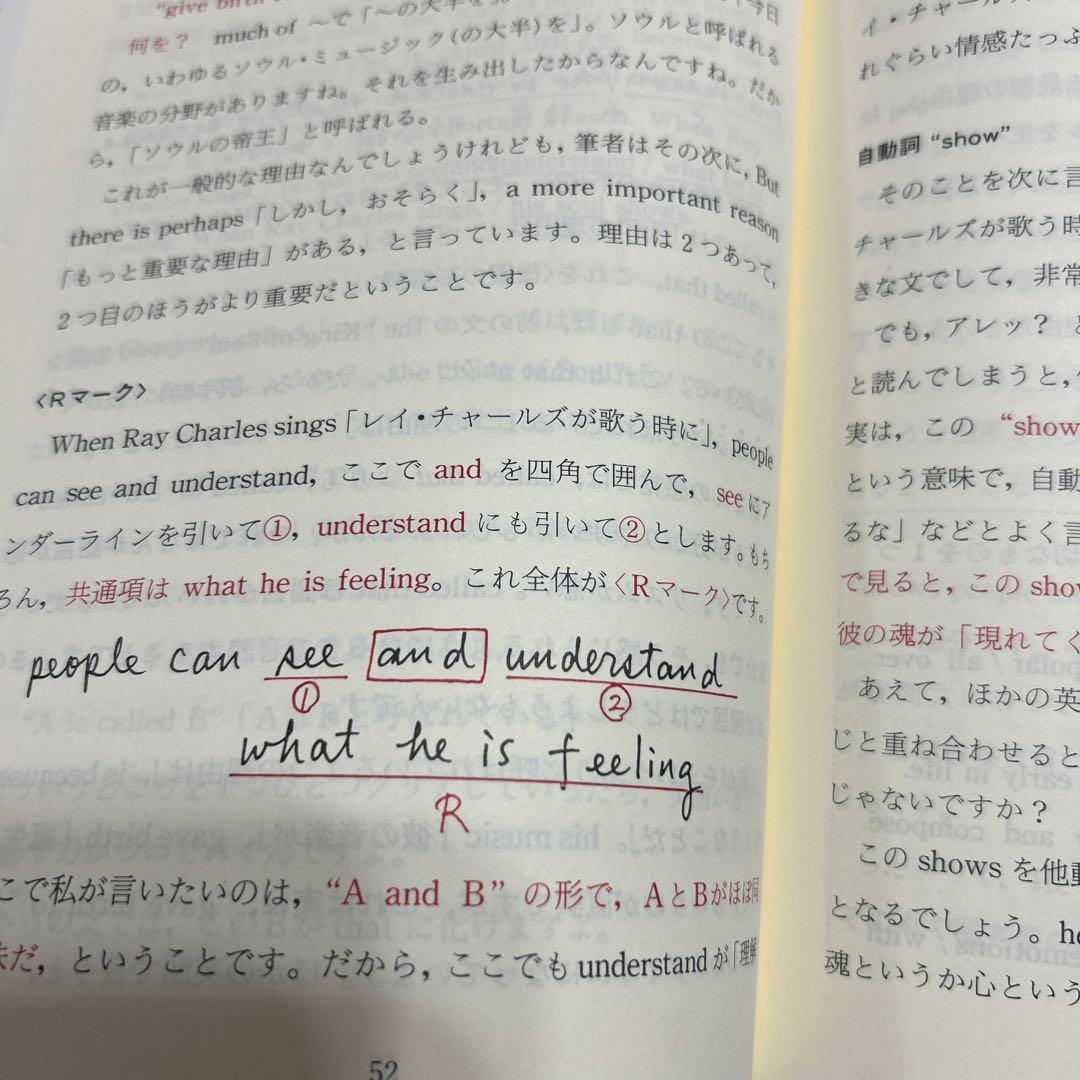 "give birth
今日
何を? much of ～で「～の大半を」。ソウルと呼ばれる
の，いわゆるソウル・ミュージック(の大半)を」。ソウルと呼ばれる
音楽の分野がありますね。それを生み出したからなんですね。だか
ら，「ソウルの帝王」と呼ばれる。
これが一般的な理由なんでしょうけれども，筆者はその次に，But
there is perhaps「しかし，おそらく」，a more important reason
「もっと重要な理由」がある，と言っています。理由は2つあって，
2つ目のほうがより重要だということです。
〈Rマーク〉
When Ray Charles sings「レイ・チャールズが歌う時に」，people
can see and understand，ここで and を四角で囲んで，see にア
ンダーラインを引いて①，understand にも引いて②とします。もち
ろん，共通項は what he is feeling。これ全体が〈Rマーク〉です。
people can see and understand
① ②
what he is feeling
R
こで私が言いたいのは，"A and B" の形で，AとBがほぼ同
味だ，ということです。だから，ここでも understand が「理解
52
イ・チャールズ
れぐらい情感たっぷ
自動詞 "show"
そのことを次に言
チャールズが歌う時
きな文でして，非常
でも，アレッ? と
と読んでしまうと，
実は，この "show
という意味で，自動
るな」などとよく言
で見ると，この show
彼の魂が「現れてく
あえて，ほかの英
じと重ね合わせると
じゃないですか?
この shows を他動
となるでしょう。he
魂というか心という